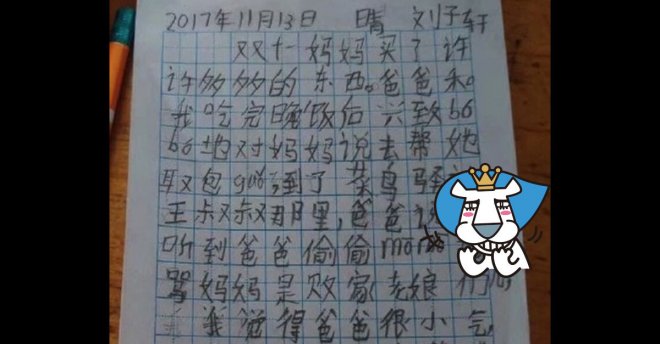 2017年11月13日 晴 刘子轩
双十一妈妈买了许
许多多的东西。爸爸和
我吃完晚饭后兴致bó
bó地对妈妈说去帮她
取包guǒ,到了菜鸟驿
王叔叔那里,爸爸
听到爸爸偷偷
骂妈妈是败家老娘们
我觉得爸爸很小气